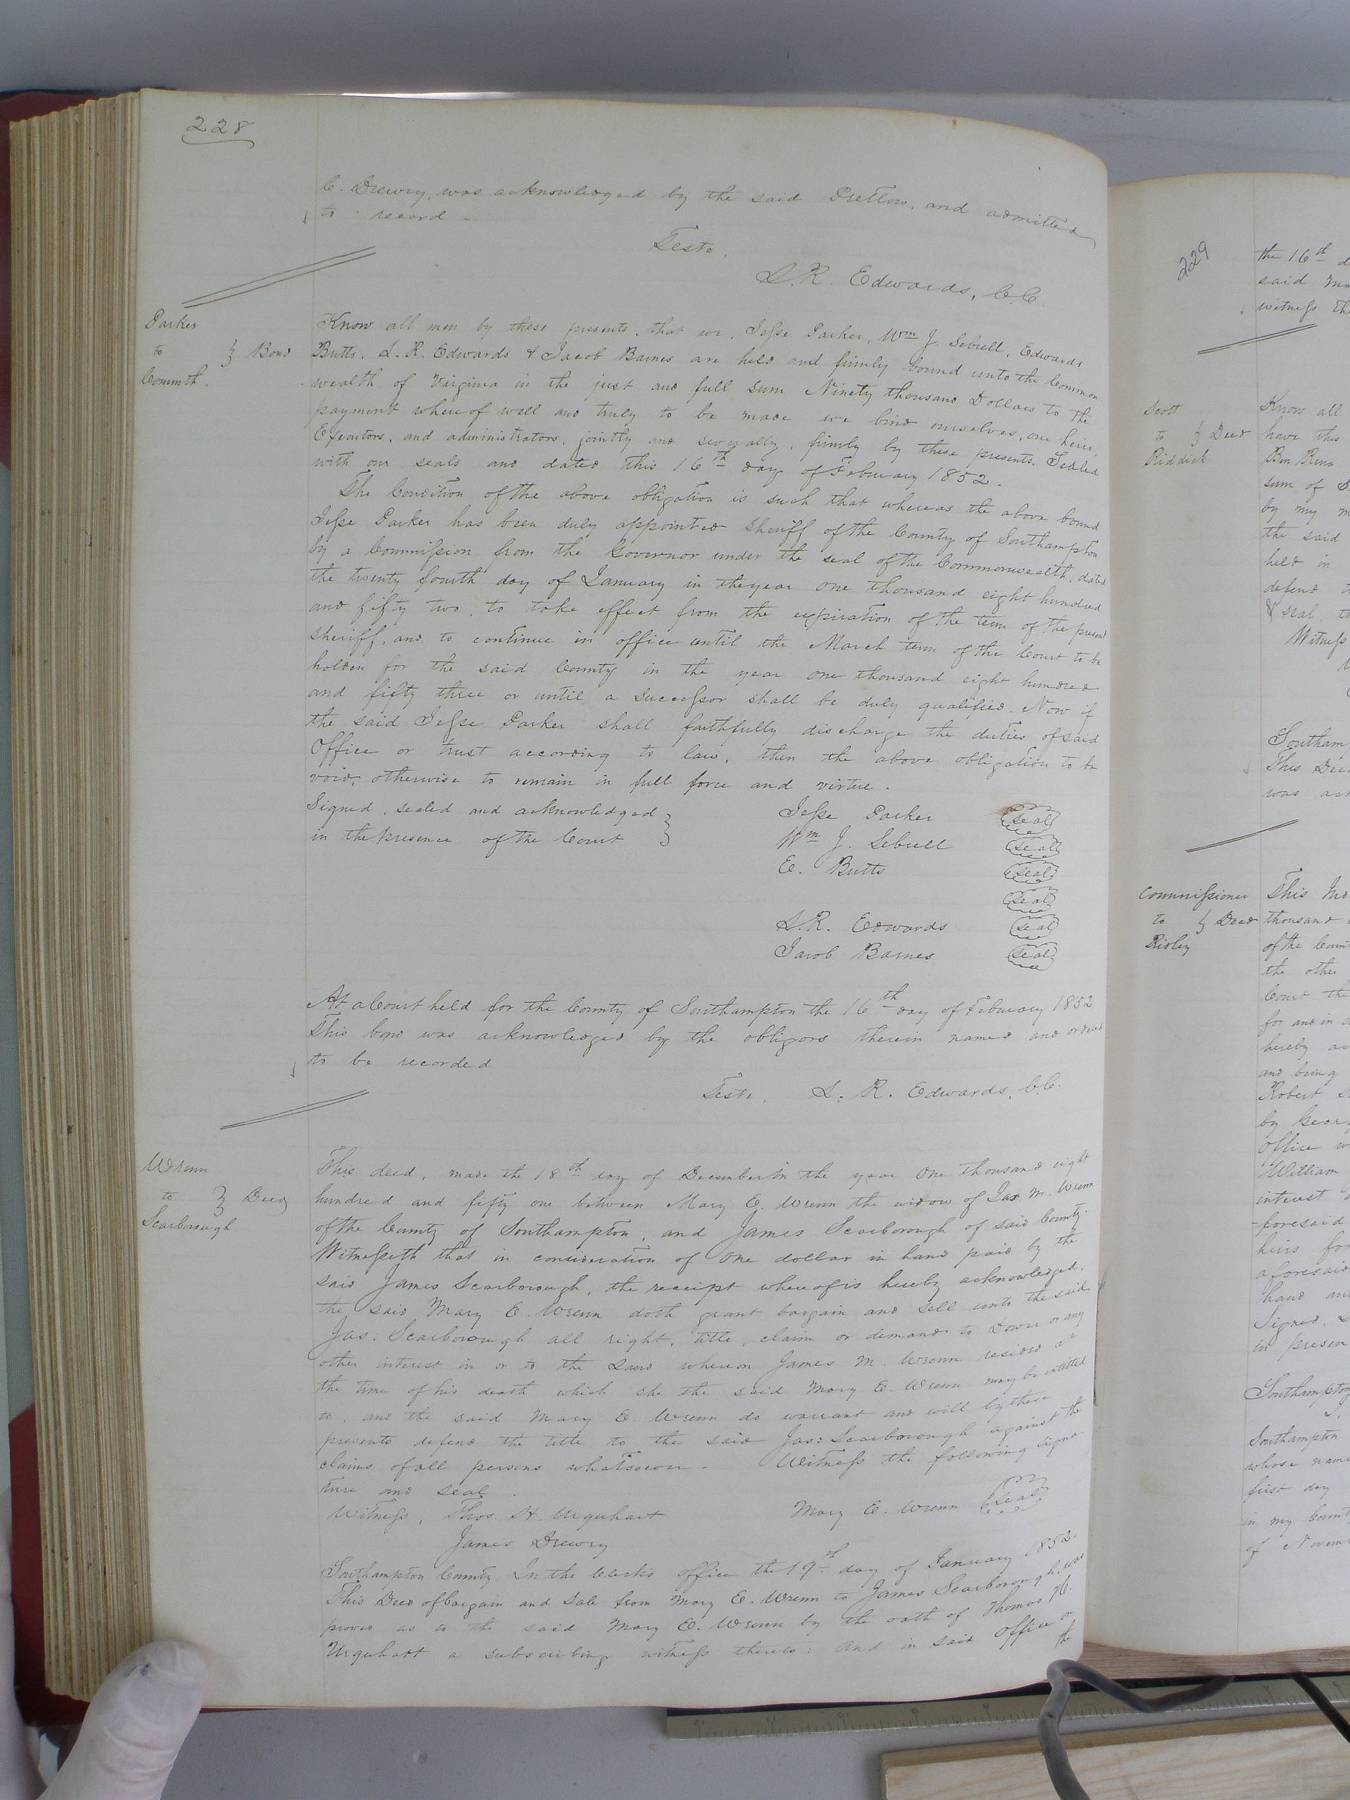 228
C. Drewry, was acknowledged by the said Pretlow, and admitted
to record -
Teste,
L. R. Edwards, C.C.
Parker
to } Bond
Commth.
Know all men by these presents, that we, Jesse Parker, Wm J. Sebrell, Edwards
Butts, L. R. Edwards & Jacob Barnes are held and firmly bound unto the Common
wealth of Virginia in the just and full sum Ninety thousand Dollars to the
payment whereof well and truly to be made we bind ourselves, our heirs,
Executors, and administrators, jointly and severally, firmly by these presents. Sealed
with our seals and dated this 16th day of February 1852.
The Condition of the above obligation is such that whereas the above bound
Jesse Parker has been duly appointed Sheriff of the County of Southampton
by a Commission from the Governor under the seal of the Commonwealth, dated
the twenty fourth day of January in the year one thousand eight hundred
and fifty two, to take effect from the expiration of the term of the present
sheriff, and to continue in office until the March term of the Court to be
holden for the said County in the year one thousand eight hundred
and fifty three or until a successor shall be duly qualified. Now if
the said Jesse Parker shall faithfully discharge the duties of said
Office or trust according to law, then the above obligation to be
void, otherwise to remain in full force and virtue.
Signed, sealed and acknowledged }
in the presence of the Court }
Jesse Parker seal
Wm J. Sebrell seal
E. Butts seal
seal
L. R. Edwards seal
Jacob Barnes seal
At a Court held for the County of Southampton the 16th day of February 1852
This bond was acknowledged by the obligors therein named and ordered
to be recorded
Teste, L. R. Edwards, C.C.
Wrenn
to } Deed
Scarborough
This deed, made the 18th day of December in the year One thousand eight
hundred and fifty one between Mary E. Wrenn the widow of Jas M. Wrenn
of the County of Southampton, and James Scarborough of said County.
Witnesseth that in consideration of one dollar in hand paid by the
said James Scarborough, the receipt whereof is hereby acknowledged.
the said Mary E. Wrenn doth grant bargain and sell unto the said
Jas. Scarborough all right, title, claim or demand to Dower or any
other interest in or to the Land whereon James M. Wrenn resided at
the time of his death which she the said Mary E. Wrenn may be entitled
to, and the said Mary E. Wrenn do warrant and will by these
presents defend the title to the said Jas: Scarborough against the
claims of all persons whatsoever - Witness the following signa
ture and seal.
Witness, Thos. H Urquhart
Mary E. Wrenn seal
James Drewry
Southampton County. In the Clerk's office the 19th day of January 1852.
This Deed of bargain and sale from Mary E. Wrenn to James Scarborough was
proved as to the said Mary E. Wrenn by the oath of Thomas H.
Urquhart a subscribing witness thereto: and in said office on
the
229
the 16th d
said Ma
witness th
Scott
to } Deed
Riddick
Know all
have this
Ben Benn
sum of
by my
the said
held in
defend
& seal, t
Witness
Southamp
This Dee
was ack
Commissioner
to } Deed
Risley
This Ind
thousand
of the Coun
the other
Court the
for and in
hereby ac
and being
Robert
by Geor
office
William
interest
foresaid
heirs for
aforesaid
hand an
Signed, s
in presen
Southampton
Southampton
whose name
first day
in my County
of Novem